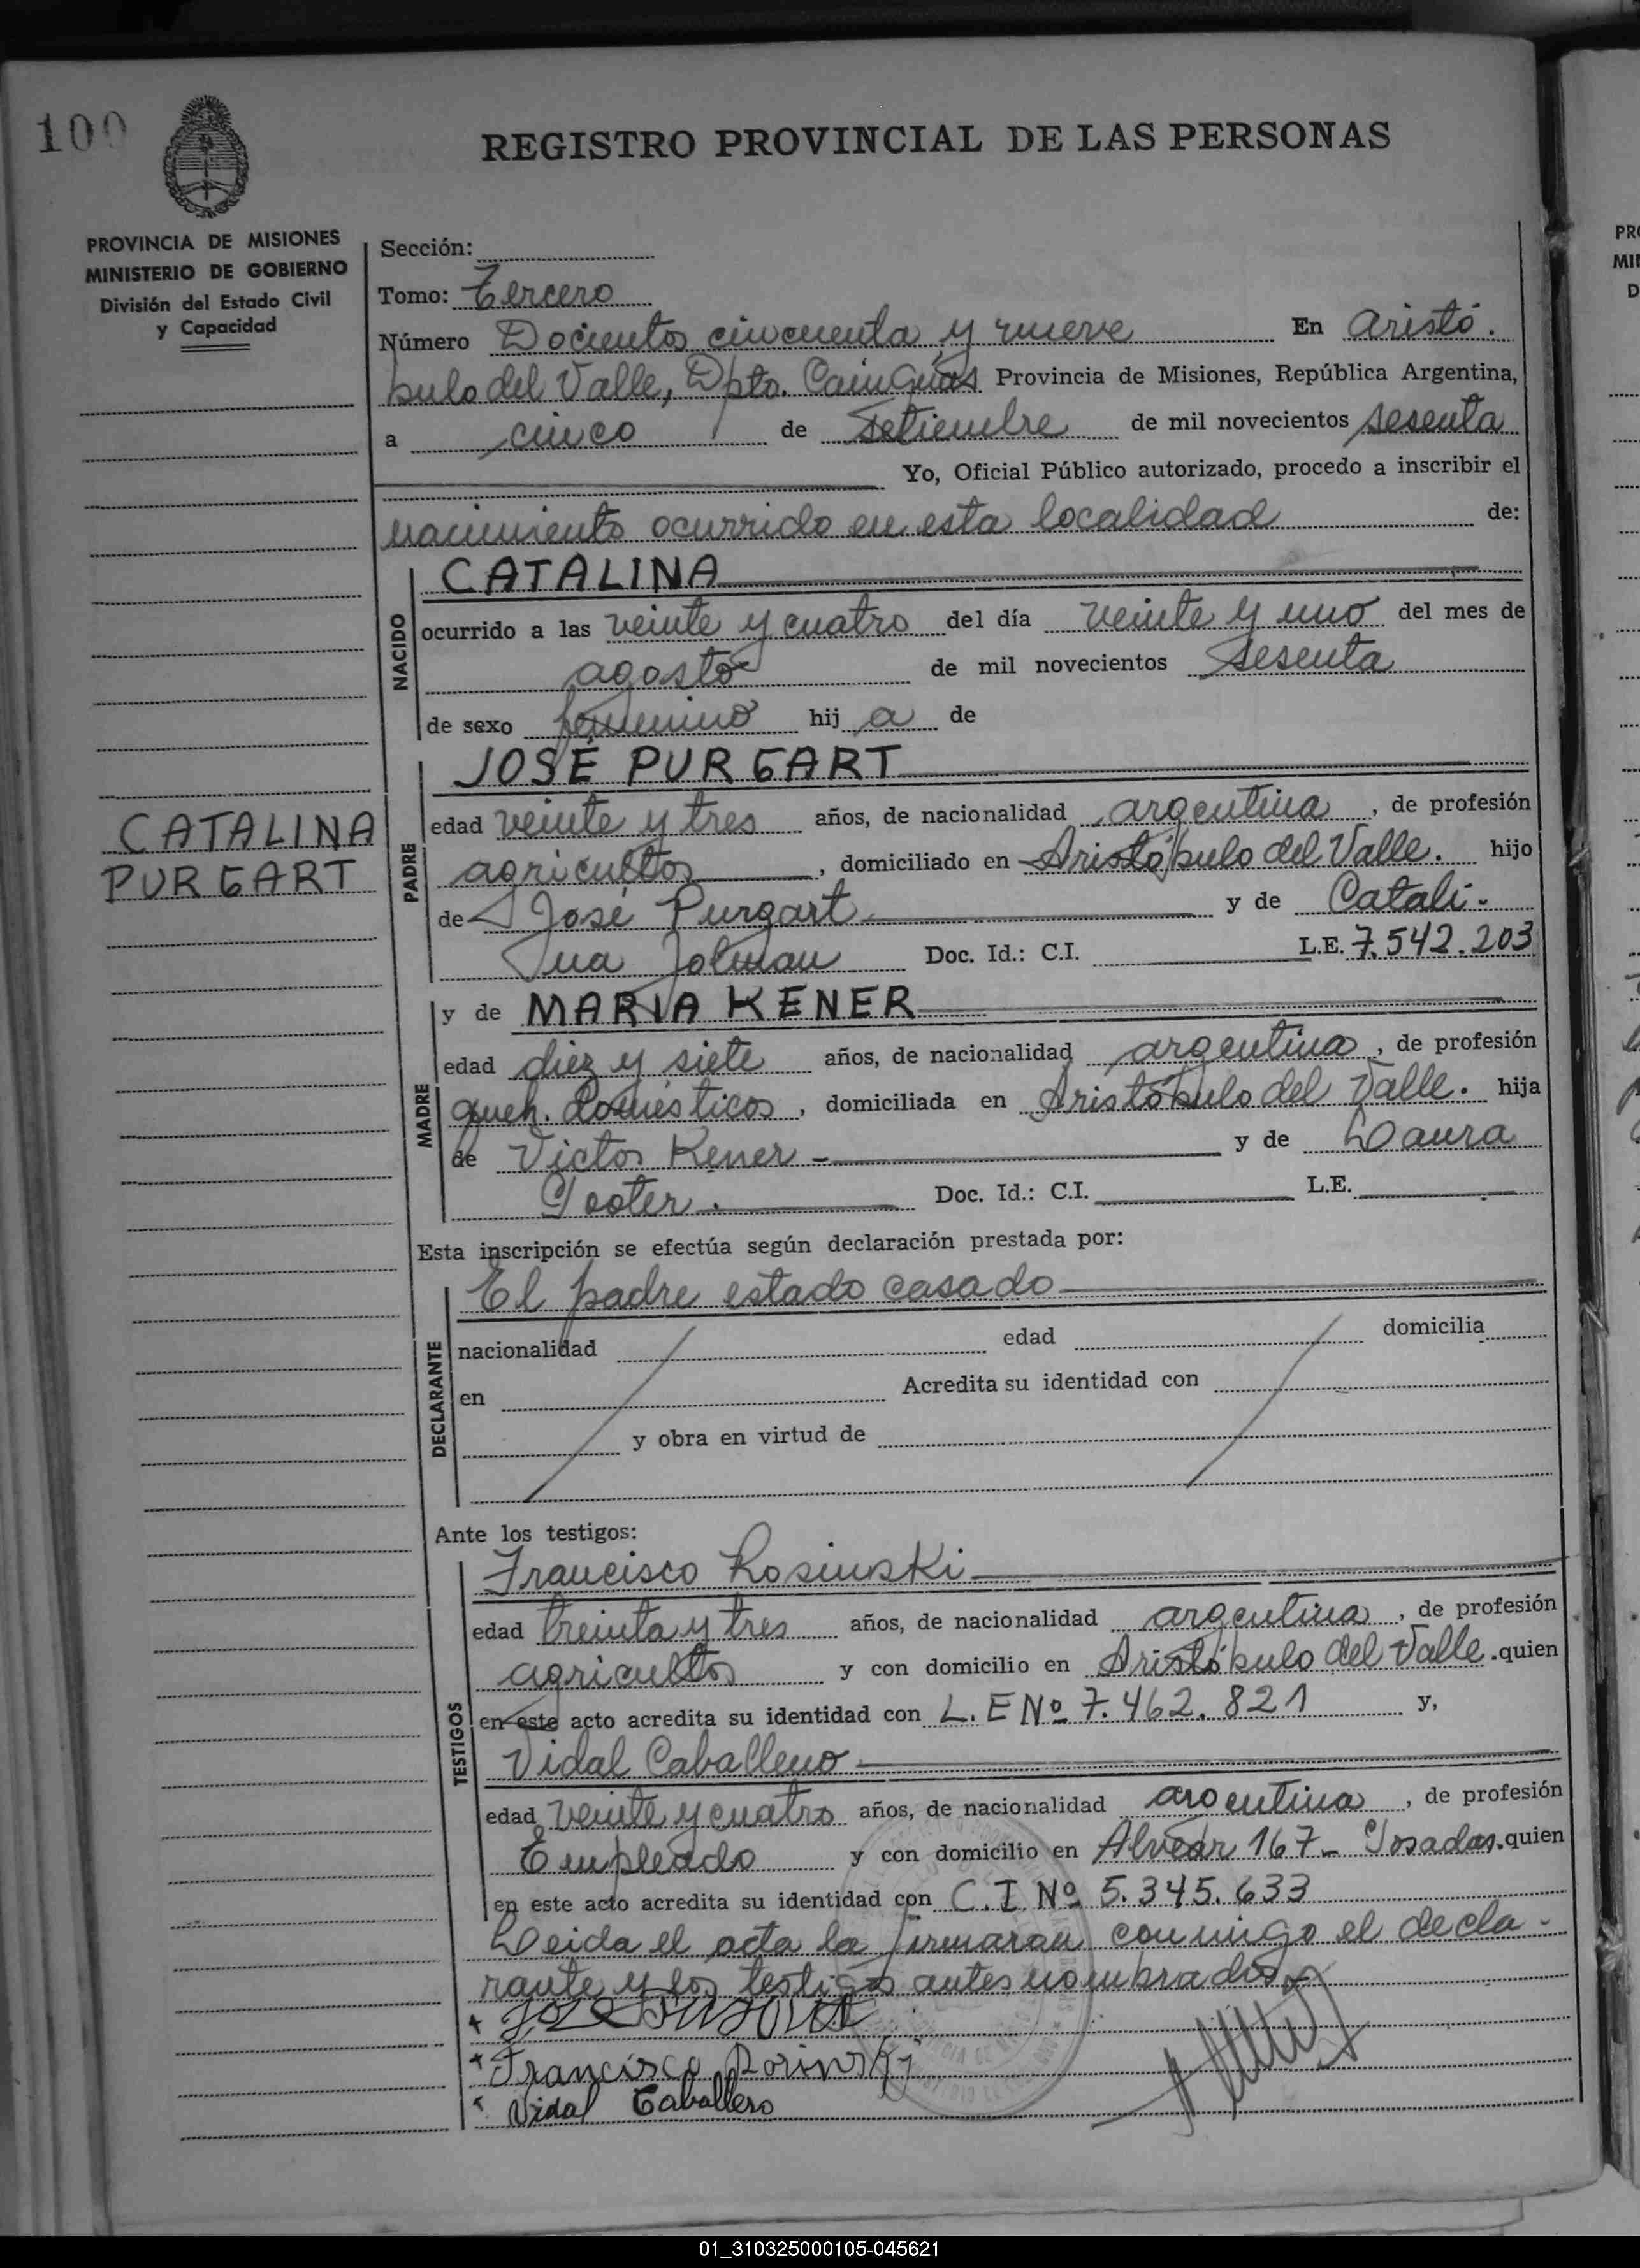 100
REGISTRO PROVINCIAL DE LAS PERSONAS
PROVINCIA DE MISIONES
MINISTERIO DE GOBIERNO
División del Estado Civil
y Capacidad
Sección:
Tomo: Tercero
Número Docientos cincuenta y nueve En Aristó.
bulo del Valle, Dpto. Cainguás Provincia de Misiones, República Argentina,
a cinco de Setiembre de mil novecientos sesenta
Yo, Oficial Público autorizado, procedo a inscribir el
nacimiento ocurrido en esta localidad de:
NACIDO
CATALINA
ocurrido a las veinte y cuatro del día veinte y uno del mes de
agosto de mil novecientos sesenta
de sexo femenino hij a de
CATALINA
PURGART
PADRE
JOSÉ PURGART
edad veinte y tres años, de nacionalidad argentina, de profesión
agricultor, domiciliado en Aristóbulo del Valle. hijo
de José Purgart y de Catali-
na Jolman Doc. Id.: C.I. L.E. 7.542.203
MADRE
y de MARIA KENER
edad diez y siete años, de nacionalidad argentina, de profesión
queh. domésticos, domiciliada en Aristóbulo del Valle. hija
de Victor Kener - y de Laura
Doc. Id.: C.I. L.E.
Esta inscripción se efectúa según declaración prestada por:
DECLARANTE
El padre estado casado
nacionalidad edad domicilia
en Acredita su identidad con
y obra en virtud de
Ante los testigos:
TESTIGOS
Francisco Rosinski
edad treinta y tres años, de nacionalidad argentina, de profesión
agricultor y con domicilio en Aristóbulo del Valle. quien
en este acto acredita su identidad con L. E Nº 7.462.821 y,
Vidal Caballero
edad veinte y cuatro años, de nacionalidad argentina, de profesión
Empleado y con domicilio en Alvear 167- Posadas. quien
en este acto acredita su identidad con C.I Nº 5.345.633
Leida el acta la firmaran conmigo el decla-
rante y los testigos antes nombrados
Francisco Rosinski
Vidal Caballero
01_310325000105-045621